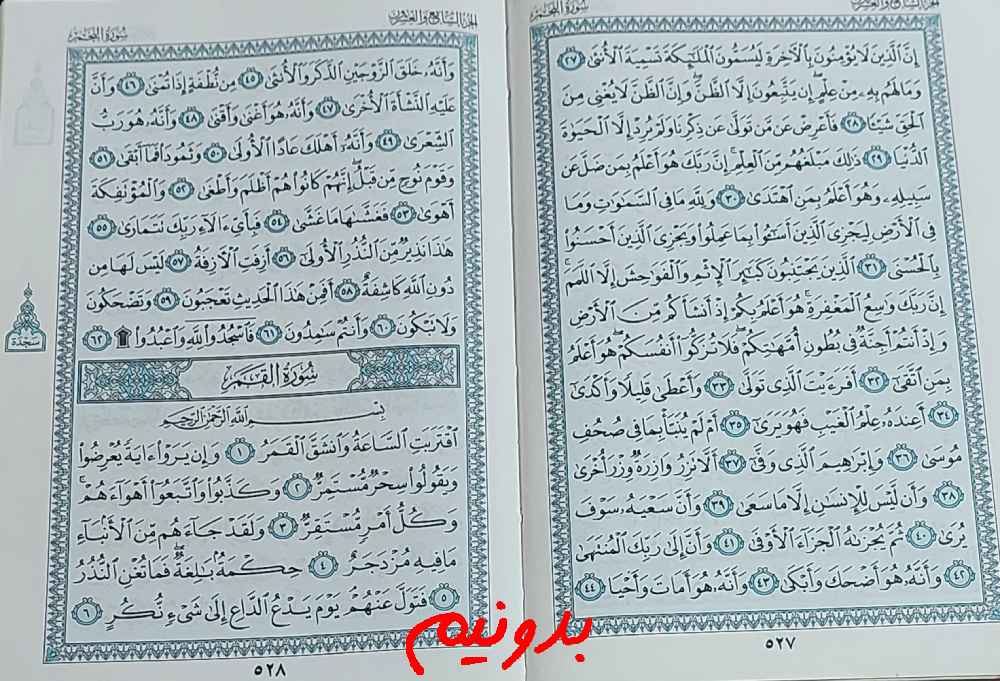 الجزء السابع والعشرون
سورة النجم
إِنَّ ٱلَّذِينَ لَا يُؤْمِنُونَ بِٱلْءَاخِرَةِ لَيُسَمُّونَ ٱلْمَلَٰٓئِكَةَ تَسْمِيَةَ ٱلْأُنثَىٰ ٢٧
وَمَا لَهُم بِهِۦ مِنْ عِلْمٍ إِن يَتَّبِعُونَ إِلَّا ٱلظَّنَّ وَإِنَّ ٱلظَّنَّ لَا يُغْنِى مِنَ
ٱلْحَقِّ شَيْـًٔا ٢٨ فَأَعْرِضْ عَن مَّن تَوَلَّىٰ عَن ذِكْرِنَا وَلَمْ يُرِدْ إِلَّا ٱلْحَيَوٰةَ
ٱلدُّنْيَا ٢٩ ذَٰلِكَ مَبْلَغُهُم مِّنَ ٱلْعِلْمِ إِنَّ رَبَّكَ هُوَ أَعْلَمُ بِمَن ضَلَّ عَن
سَبِيلِهِۦ وَهُوَ أَعْلَمُ بِمَنِ ٱهْتَدَىٰ ٣٠ وَلِلَّهِ مَا فِى ٱلسَّمَٰوَٰتِ وَمَا
فِى ٱلْأَرْضِ لِيَجْزِىَ ٱلَّذِينَ أَسَٰٓـُٔوا۟ بِمَا عَمِلُوا۟ وَيَجْزِىَ ٱلَّذِينَ أَحْسَنُوا۟
بِٱلْحُسْنَى ٣١ ٱلَّذِينَ يَجْتَنِبُونَ كَبَٰٓئِرَ ٱلْإِثْمِ وَٱلْفَوَٰحِشَ إِلَّا ٱللَّمَمَ
إِنَّ رَبَّكَ وَٰسِعُ ٱلْمَغْفِرَةِ هُوَ أَعْلَمُ بِكُمْ إِذْ أَنشَأَكُم مِّنَ ٱلْأَرْضِ
وَإِذْ أَنتُمْ أَجِنَّةٌ فِى بُطُونِ أُمَّهَٰتِكُمْ فَلَا تُزَكُّوٓا۟ أَنفُسَكُمْ هُوَ أَعْلَمُ
بِمَنِ ٱتَّقَىٰٓ ٣٢ أَفَرَءَيْتَ ٱلَّذِى تَوَلَّىٰ ٣٣ وَأَعْطَىٰ قَلِيلًا وَأَكْدَىٰٓ
٣٤ أَعِندَهُۥ عِلْمُ ٱلْغَيْبِ فَهُوَ يَرَىٰٓ ٣٥ أَمْ لَمْ يُنَبَّأْ بِمَا فِى صُحُفِ
مُوسَىٰ ٣٦ وَإِبْرَٰهِيمَ ٱلَّذِى وَفَّىٰٓ ٣٧ أَلَّا تَزِرُ وَازِرَةٌ وِزْرَ أُخْرَىٰ
٣٨ وَأَن لَّيْسَ لِلْإِنسَٰنِ إِلَّا مَا سَعَىٰ ٣٩ وَأَنَّ سَعْيَهُۥ سَوْفَ
يُرَىٰ ٤٠ ثُمَّ يُجْزَىٰهُ ٱلْجَزَآءَ ٱلْأَوْفَىٰ ٤١ وَأَنَّ إِلَىٰ رَبِّكَ ٱلْمُنتَهَىٰ
٤٢ وَأَنَّهُۥ هُوَ أَضْحَكَ وَأَبْكَىٰ ٤٣ وَأَنَّهُۥ هُوَ أَمَاتَ وَأَحْيَا ٤٤
٥٢٧
الجزء السابع والعشرون
سورة النجم
وَأَنَّهُۥ خَلَقَ ٱلزَّوْجَيْنِ ٱلذَّكَرَ وَٱلْأُنثَىٰ ٤٥ مِن نُّطْفَةٍ إِذَا تُمْنَىٰ ٤٦ وَأَنَّ
عَلَيْهِ ٱلنَّشْأَةَ ٱلْأُخْرَىٰ ٤٧ وَأَنَّهُۥ هُوَ أَغْنَىٰ وَأَقْنَىٰ ٤٨ وَأَنَّهُۥ هُوَ رَبُّ
ٱلشِّعْرَىٰ ٤٩ وَأَنَّهُۥٓ أَهْلَكَ عَادًا ٱلْأُولَىٰ ٥٠ وَثَمُودَا۟ فَمَآ أَبْقَىٰ ٥١
وَقَوْمَ نُوحٍ مِّن قَبْلُ إِنَّهُمْ كَانُوا۟ هُمْ أَظْلَمَ وَأَطْغَىٰ ٥٢ وَٱلْمُؤْتَفِكَةَ
أَهْوَىٰ ٥٣ فَغَشَّىٰهَا مَا غَشَّىٰ ٥٤ فَبِأَىِّ ءَالَآءِ رَبِّكَ تَتَمَارَىٰ ٥٥
هَٰذَا نَذِيرٌ مِّنَ ٱلنُّذُرِ ٱلْأُولَىٰٓ ٥٦ أَزِفَتِ ٱلْءَازِفَةُ ٥٧ لَيْسَ لَهَا مِن
دُونِ ٱللَّهِ كَاشِفَةٌ ٥٨ أَفَمِنْ هَٰذَا ٱلْحَدِيثِ تَعْجَبُونَ ٥٩ وَتَضْحَكُونَ
وَلَا تَبْكُونَ ٦٠ وَأَنتُمْ سَٰمِدُونَ ٦١ فَٱسْجُدُوا۟ لِلَّهِ وَٱعْبُدُوا۟ ۩ ٦٢
سجدة
سورة القمر
بِسْمِ ٱللَّهِ ٱلرَّحْمَٰنِ ٱلرَّحِيمِ
ٱقْتَرَبَتِ ٱلسَّاعَةُ وَٱنشَقَّ ٱلْقَمَرُ ١ وَإِن يَرَوْا۟ ءَايَةً يُعْرِضُوا۟
وَيَقُولُوا۟ سِحْرٌ مُّسْتَمِرٌّ ٢ وَكَذَّبُوا۟ وَٱتَّبَعُوٓا۟ أَهْوَآءَهُمْ
وَكُلُّ أَمْرٍ مُّسْتَقِرٌّ ٣ وَلَقَدْ جَآءَهُم مِّنَ ٱلْأَنۢبَآءِ
مَا فِيهِ مُزْدَجَرٌ ٤ حِكْمَةٌۢ بَٰلِغَةٌ فَمَا تُغْنِ ٱلنُّذُرُ
٥ فَتَوَلَّ عَنْهُمْ يَوْمَ يَدْعُ ٱلدَّاعِ إِلَىٰ شَىْءٍ نُّكُرٍ ٦
٥٢٨
بدونیم